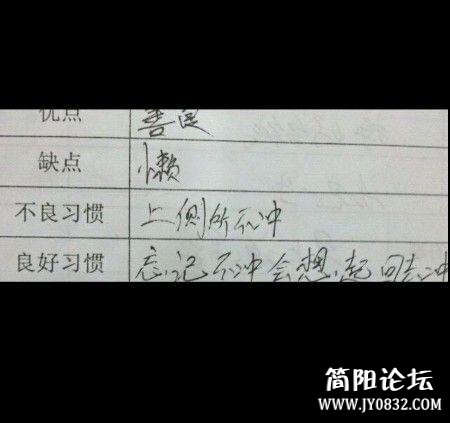 优点 善良
缺点 懒
不良习惯 上侧所不冲
良好习惯 忘记不冲会想起回去冲
简阳论坛
WWW.JY0832.COM